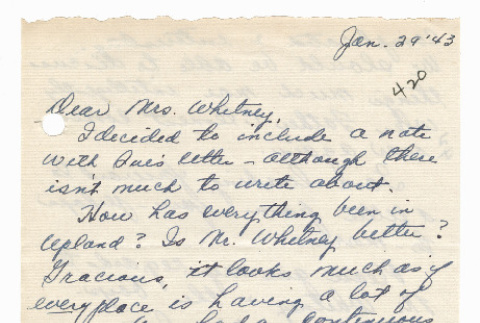 Jan. 29 '43
420
Dear Mrs. Whitney,
I decided to include a note
with Sue's letter - although there
isn't much to write about.
How has everything been in
Upland? Is Mr. Whitney better?
Gracious, it looks much as if
every place is having a lot of
had a continuous